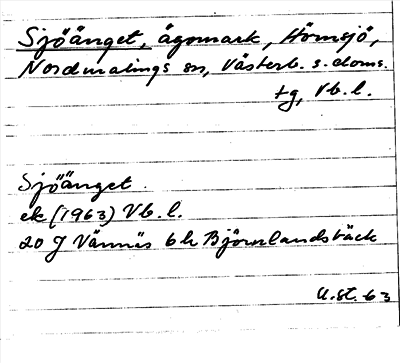 Sjöänget, ägomark, Hörnsjö,
Nordmalings sn, Västerb. s. doms.
tg, Vb. l.
Sjöänget.
ek (1963) Vb. l.
20 J Vännäs 6 h Björnlandsbäck
U. st. 63